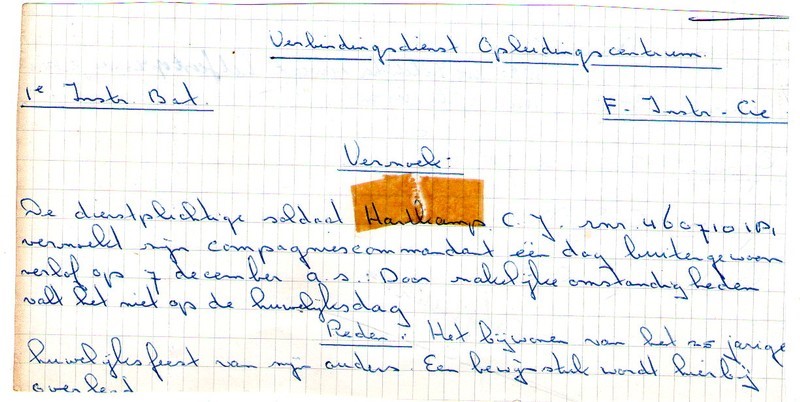 Verbindingsdienst Opleidingscentrum.
1e Instr. Bat.
F - Instr - Cie
Verzoek:
De dienstplichtige soldaat Hartkamp C. J. rnr. 460710101
verzoekt zijn compagniescommandant één dag buitengewoon
verlof op 7 december a.s.: Door zakelijke omstandigheden
valt het niet op de huwelijksdag
Reden: Het bijwonen van het 25 jarige
huwelijksfeest van mijn ouders. Een bewijsstuk wordt hierbij